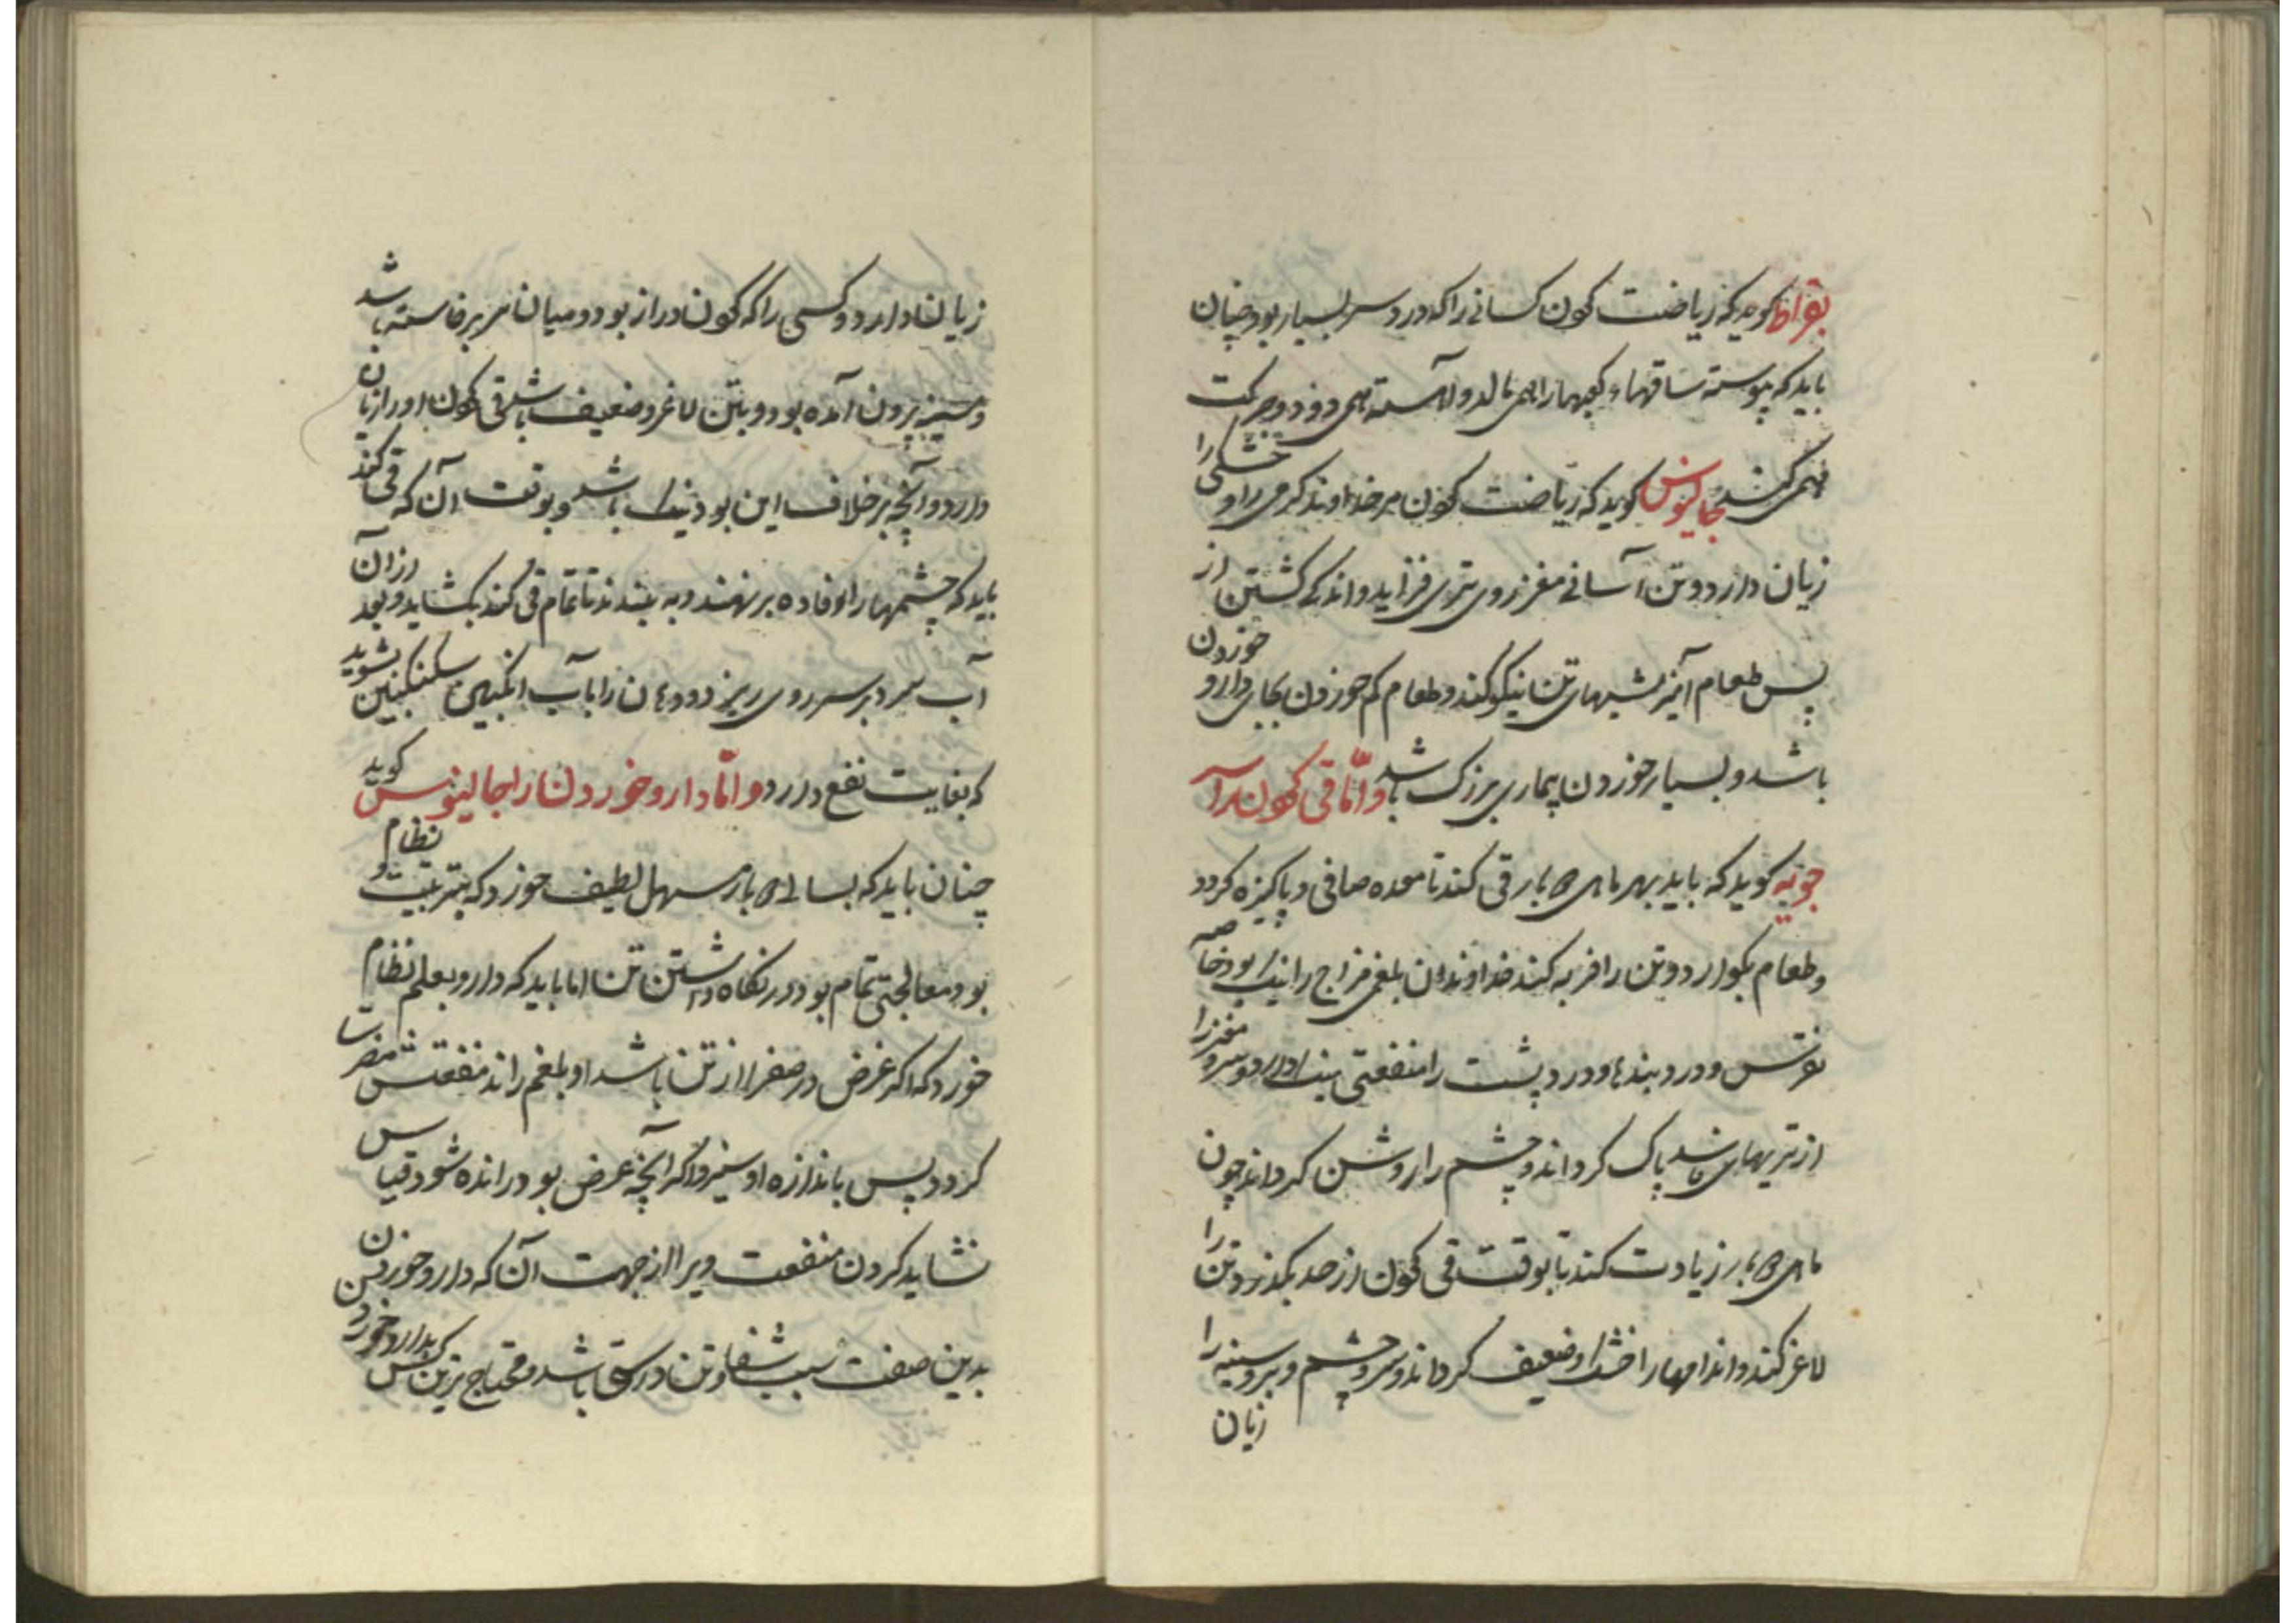 بقراط کوید که ریاضت کردن کسانی را که درد سر بسیار بود چنان
باید که پیوسته ساقهاء کفهارا همی مالد و آهسته همی دود و حرکت
همی کند جالینوس کوید که ریاضت کردن مر خداوند کرمی را و خشکی را
زیان دارد و تن آسانی مغز روی تری فزاید و اندکی کشتن از
پس طعام آمیزشیهای تن نیکو کند و طعام کم خوردن بجای دارو خوردن
باشد و بسیار خوردن بیماری بزرک باشد و امّا قی کردن را
جونیه کوید که باید بهر ماهی ۵ بار قی کند تا معده صافی و پاکیزه کردد
و طعام بکوارد و تن را فربه کند خداوندان بلغمی مزاج را نیک بود خاصه
نقرس و درد بندها و درد پشت را منفعتی نیک دارد و سر و مغز را
از تریهای فاسد پاک کرداند و چشم را روشن کرداند چون
ماهی ۵ بار زیادت کند تا بوقت قی کردن از حد بکذرد تن را
لاغر کند و اندامها را خشک و ضعیف کرداند و سر و چشم و بر و سینه را
زیان
زیان دارد و کسی را که کردن دراز بود و میان سر برخاسته باشد
و سینه بیرون آمده بود و بتن لاغر و ضعیف باشد قی کردن او را زیان
دارد و آنچه بر خلاف این بود نیک باشد و بوقت آن که قی کند
باید که چشمها را رفاده بر نهند و به بندند تا تمام قی کند بکشاید و بعد ازان
آب سرد بر سر روی ریزد و دهان را بآب انکبین سکنکبین بشوید
که بغایت نفع دارد و امّا دارو خوردن را جالینوس کوید
چنان باید که بسالی ۵ بار مسهل لطیف خورد که بتربیت و نظام
بود معالجتی تمام بود در نکاه داشتن تن اما باید که دارو بعلم نظام
خورد که اکر غرض در صفرا از تن باشد او بلغم راند منفعتش مضرت
کردد پس باندازه او سیزد اکر آنچه غرض بود رانده شود قیاس
نشاید کردن منفعت ویرا از جهت آن که دارو خوردن
بدین صفت سبب شفا و تن درستی باشد و محتاج ترین کس بدارو خورد